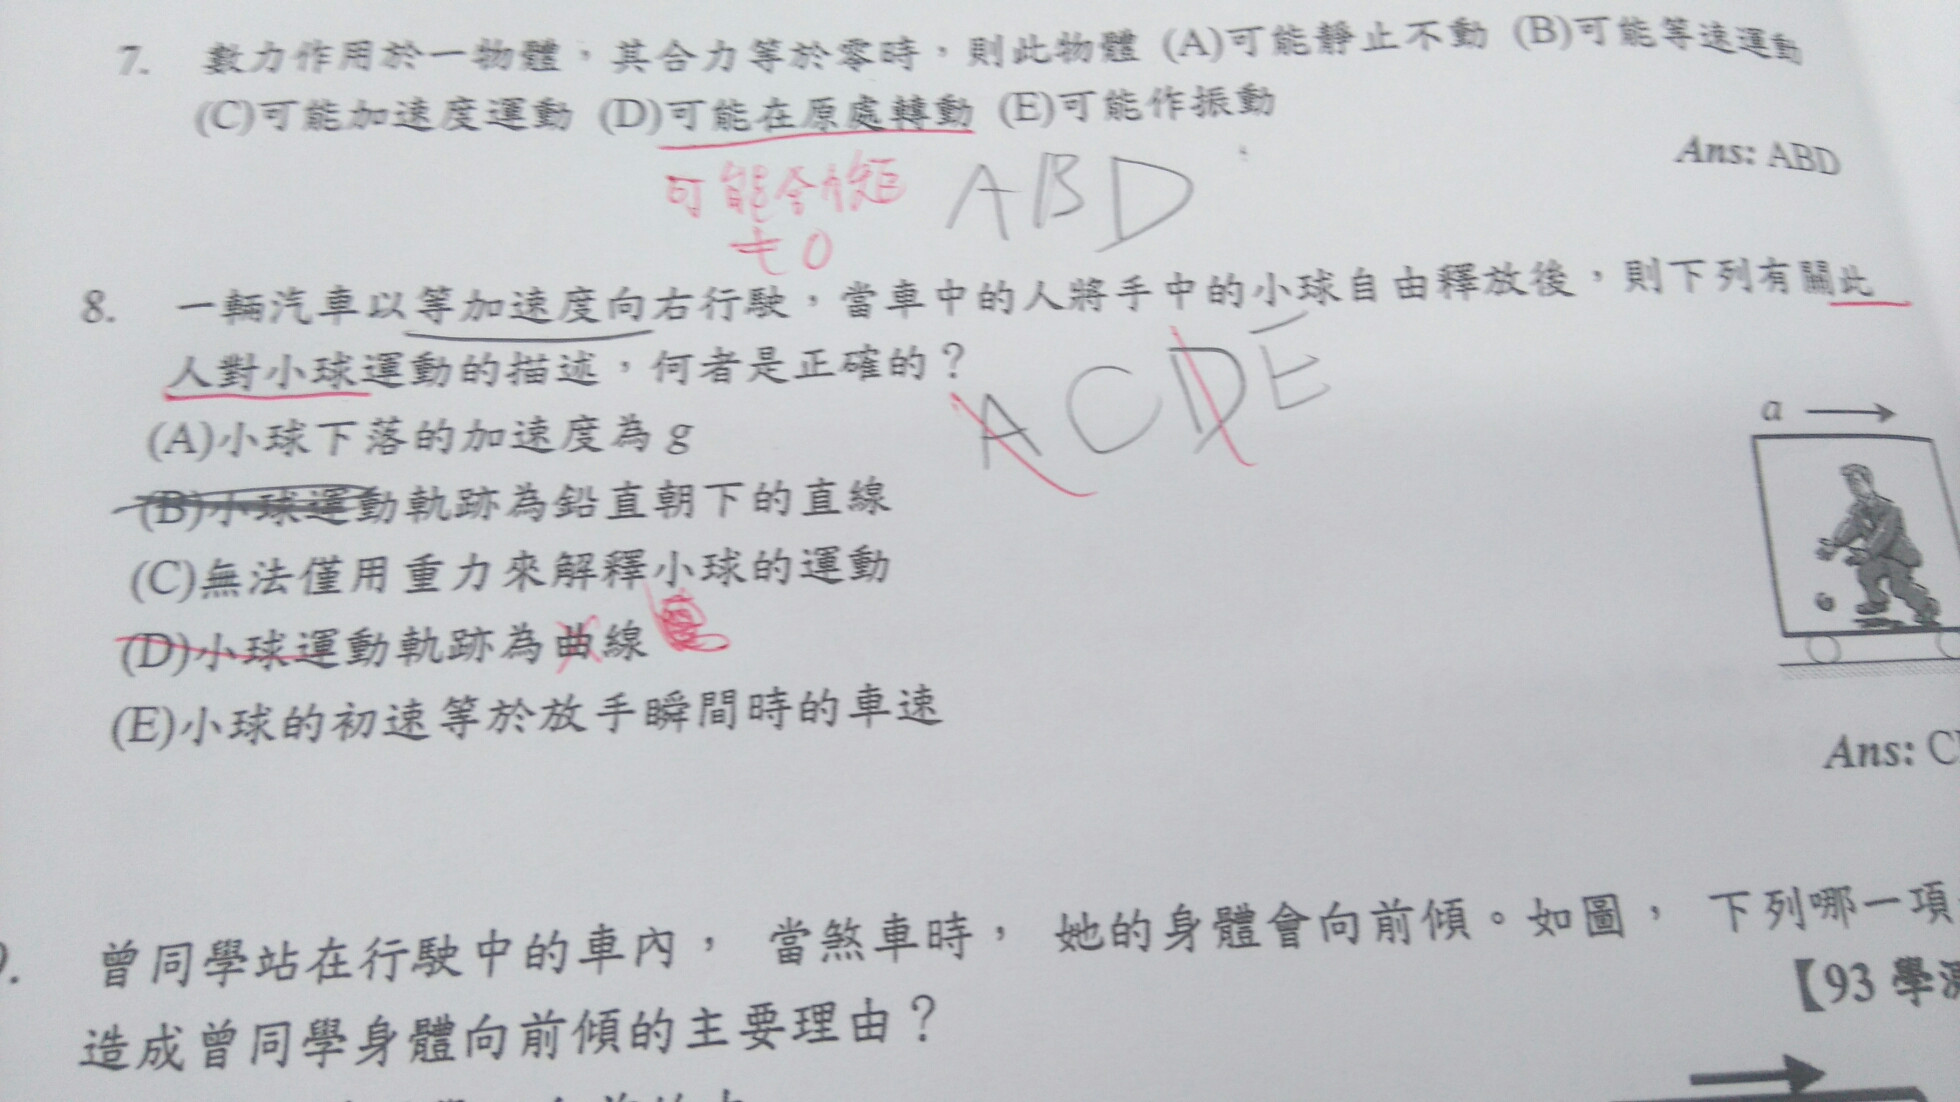 7. 數力作用於一物體，其合力等於零時，則此物體 (A)可能靜止不動 (B)可能等速運動
(C)可能加速度運動 (D)可能在原處轉動 (E)可能作振動
Ans: ABD
可能合力矩
ABD
≠0
8. 一輛汽車以等加速度向右行駛，當車中的人將手中的小球自由釋放後，則下列有關此
人對小球運動的描述，何者是正確的？
ACDE
(A)小球下落的加速度為 g
a
(B)小球運動軌跡為鉛直朝下的直線
(C)無法僅用重力來解釋小球的運動
(D)小球運動軌跡為曲線
(E)小球的初速等於放手瞬間時的車速
Ans: C
曾同學站在行駛中的車內， 當煞車時， 她的身體會向前傾。如圖， 下列哪一項
【93 學
造成曾同學身體向前傾的主要理由？